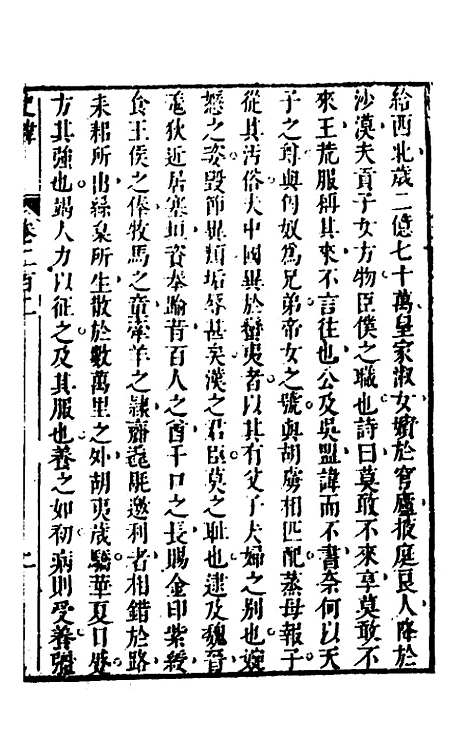 給西北歲二億七十萬皇家淑女嬪於穹廬掖庭良人降於
沙漠夫貢子女方物臣僕之職也詩曰莫敢不來享莫敢不
來王荒服稱其來不言往也公及吳盟諱而不書奈何以天
子之尊與匈奴爲兄弟帝女之號與胡虜相匹配蒸母報子
從其汚俗夫中國異於蠻夷者以其有父子夫婦之別也婉
戀之姿毀節異類垢辱甚矣漢之君臣莫之耻也逮及魏晉
羗狄近居塞垣資奉踰昔百人之酋千口之長賜金印紫綬
食王侯之俸牧馬之童牽羊之隷齎毳罽邀利者相錯於路
耒耜所出絲枲所生散於數萬里之外胡夷歲驕華夏日蹙
方其強也竭人力以征之及其服也養之如初病則受養強
史緯
卷二百十